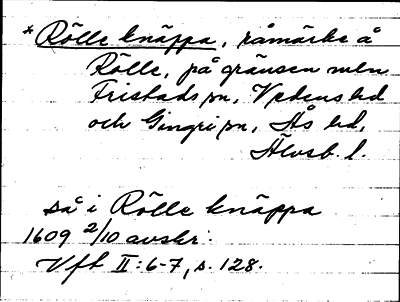 * Rölle knäppa, råmärke å
Rölle, på gränsen mln
Fristads sn, Vedens hd
och Gingri sn, Ås hd,
Älvsb. l.
så i Rölle knäppa
1609 2/10 avskr.
Vft II:6-7, s. 128.